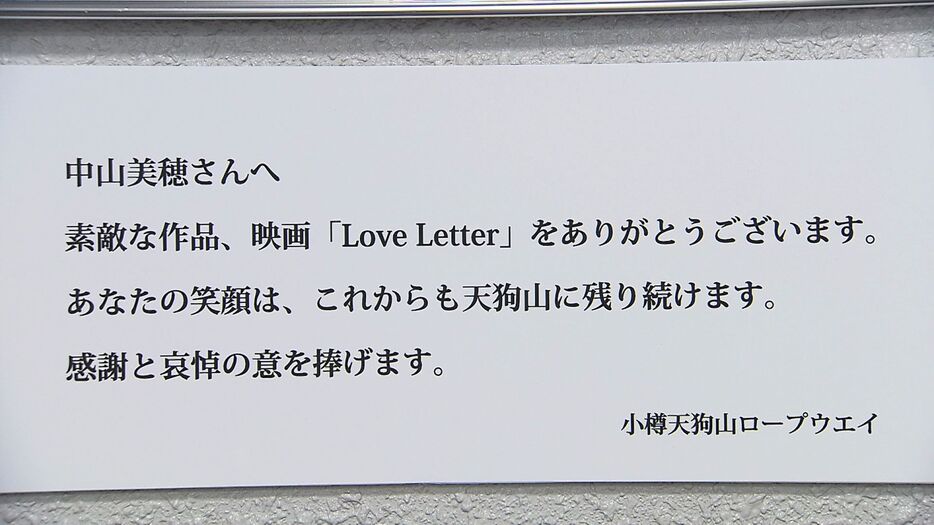 中山美穂さんへ
素敵な作品、映画「Love Letter」をありがとうございます。
あなたの笑顔は、これからも天狗山に残り続けます。
感謝と哀悼の意を捧げます。
小樽天狗山ロープウエイ